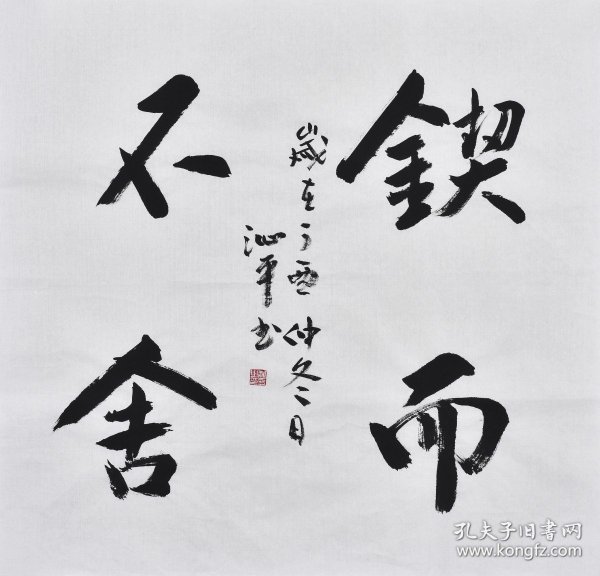 鍥而
不舍
歲在丁酉仲冬日
沁平书
孔夫子旧书网
www.kongfz.com